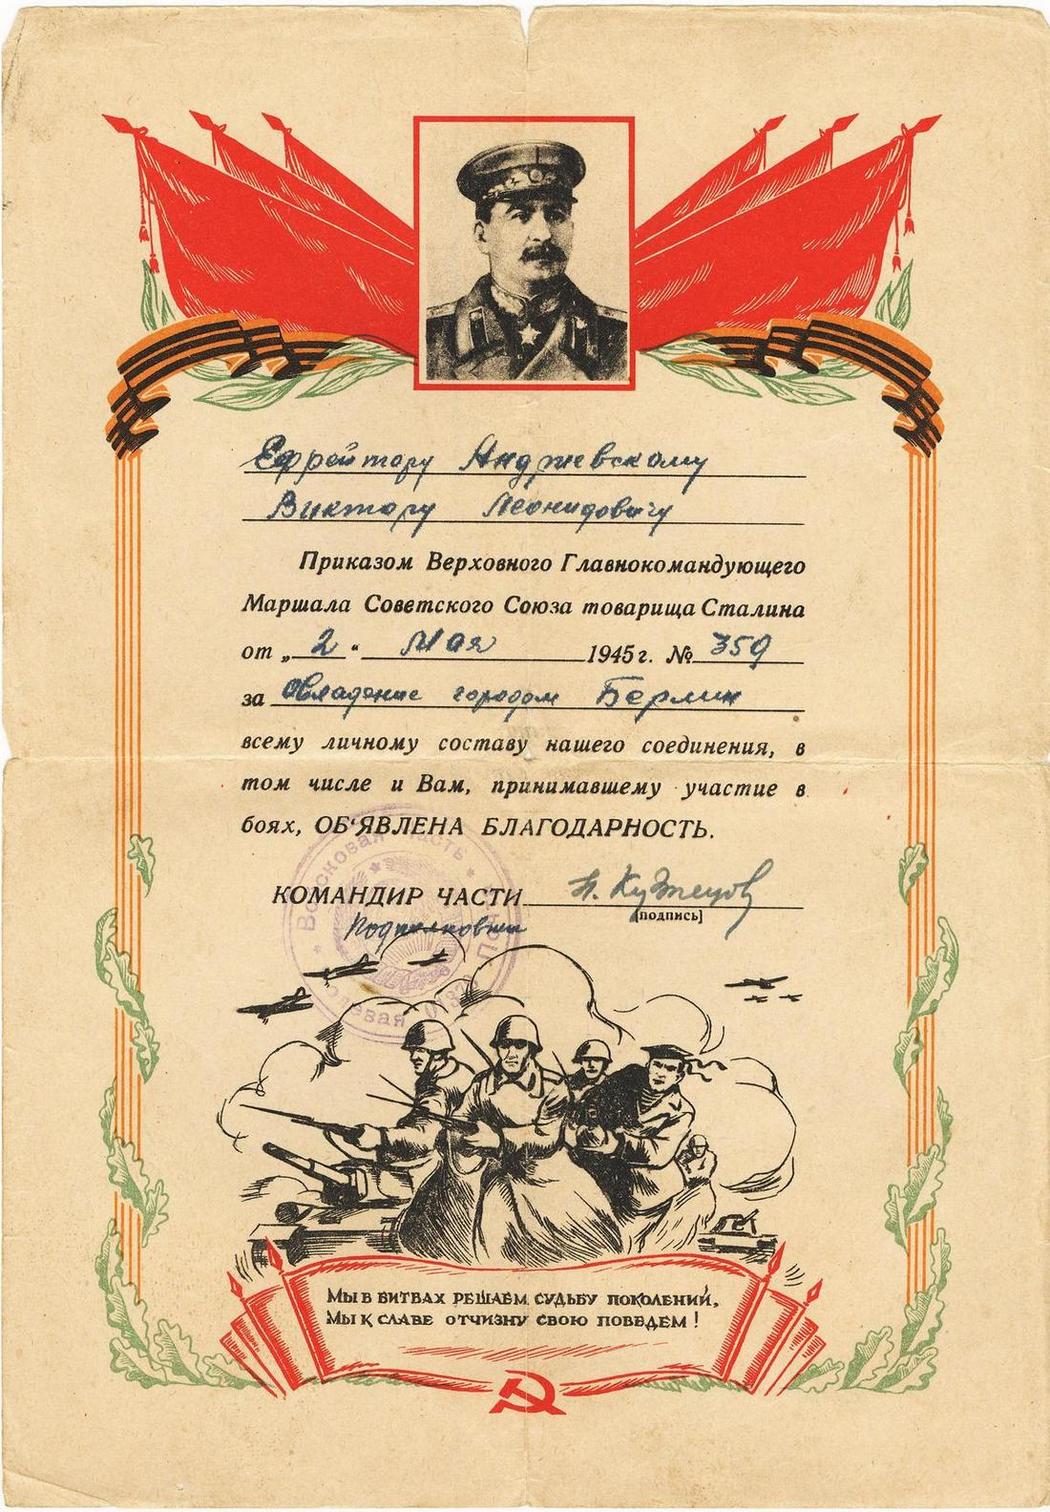 Ефрейтору Андриевскому
Виктору Леонидовичу
Приказом Верховного Главнокомандующего
Маршала Советского Союза товарища Сталина
от „2“ Мая 1945 г. № 359
за Овладение городом Берлин
всему личному составу нашего соединения, в
том числе и Вам, принимавшему участие в
боях, ОБ'ЯВЛЕНА БЛАГОДАРНОСТЬ.
КОМАНДИР ЧАСТИ П. Кузнецов
[подпись]
Подполковник
Войсковая часть
Полевая почта
МЫ В БИТВАХ РЕШАЕМ СУДЬБУ ПОКОЛЕНИЙ,
МЫ К СЛАВЕ ОТЧИЗНУ СВОЮ ПОВЕДЕМ!